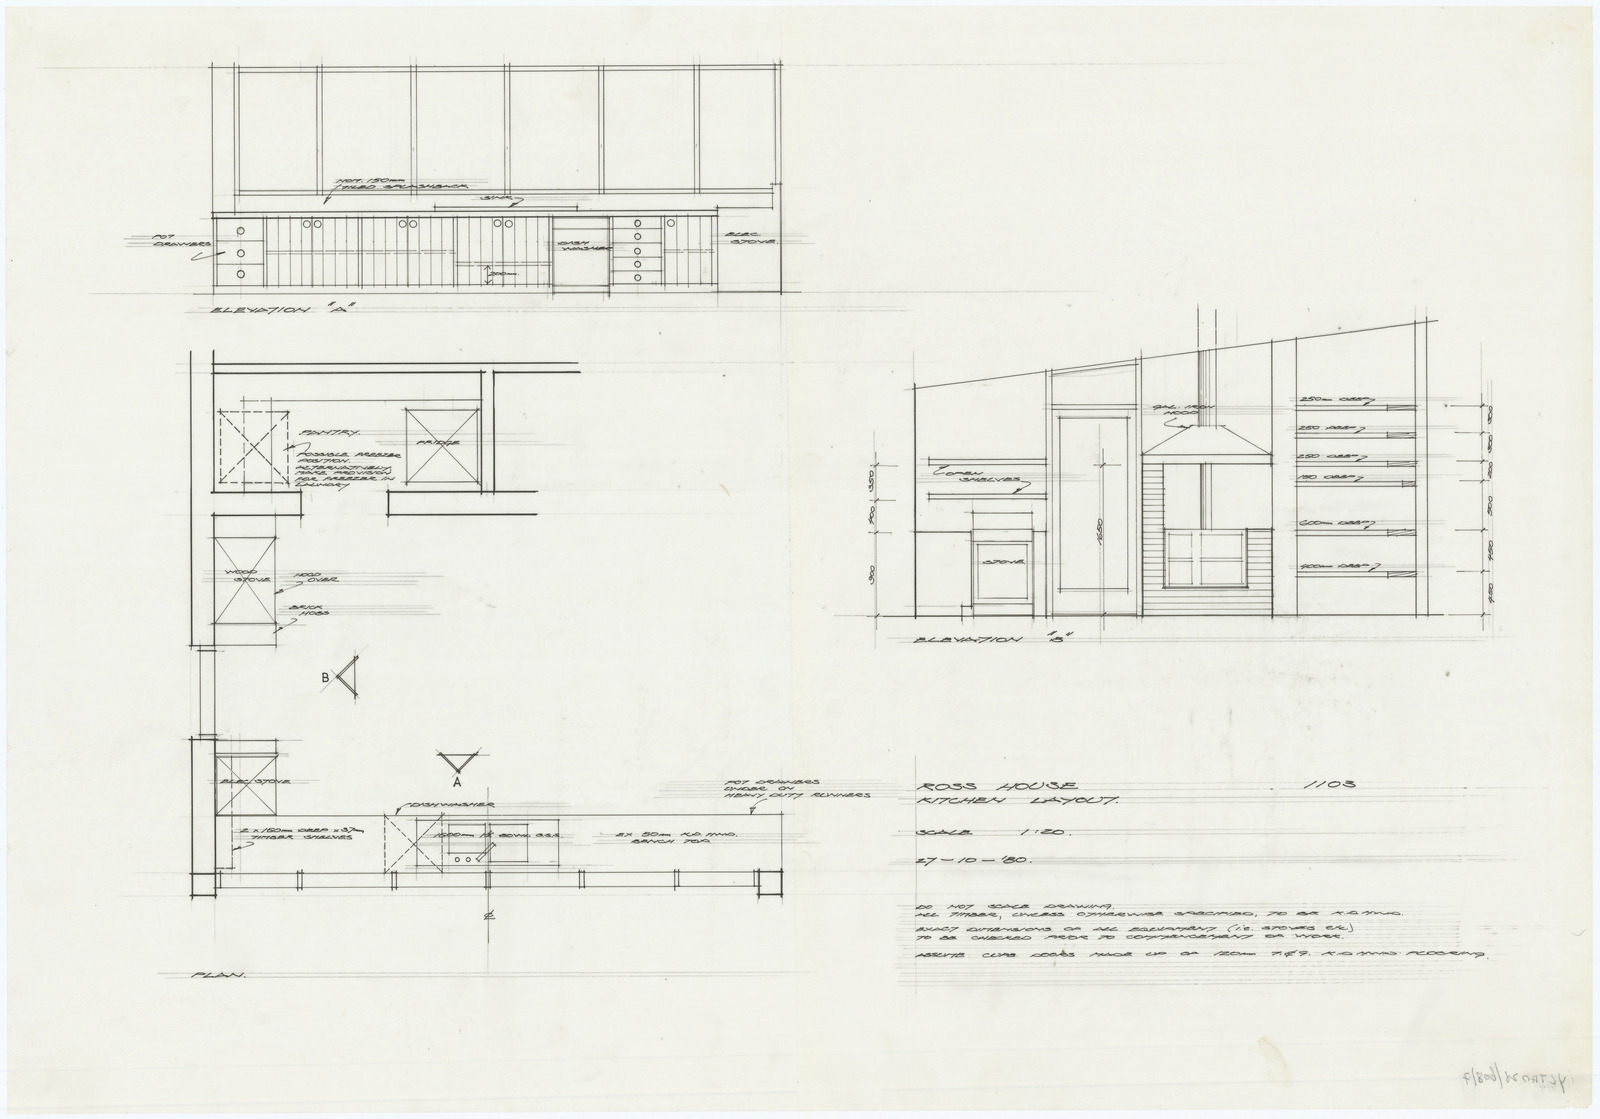 NOM. 150mm
TILED SPLASHBACK
SINK
POT
DRAWERS
DISH
WASHER
ELEC.
STOVE.
300mm
ELEVATION "A"
PANTRY.
POSSIBLE FREEZER
POSITION.
ALTERNATIVELY,
MAKE PROVISION
FOR FREEZER IN
LAUNDRY
FRIDGE
WOOD
STOVE
HOOD
OVER
BRICK
HOBS
B
A
ELEC STOVE
DISHWASHER
2 x 150mm DEEP x 37mm
TIMBER SHELVES
POT DRAWERS
UNDER ON
HEAVY DUTY RUNNERS
2X 50mm K.D. HWD.
BENCH TOP
PLAN.
GAL. IRON
HOOD
OPEN
SHELVES
STOVE
1650
350
400
900
250mm DEEP
250 DEEP
250 DEEP
150 DEEP
600mm DEEP
400mm DEEP
300
300
200
500
450
450
ELEVATION "B"
ROSS HOUSE 1103
KITCHEN LAYOUT.
SCALE 1:20.
27-10-'80.
DO NOT SCALE DRAWING.
ALL TIMBER, UNLESS OTHERWISE SPECIFIED, TO BE K.D.HWD.
EXACT DIMENSIONS OF ALL EQUIPMENT (i.e. STOVES etc)
TO BE CHECKED PRIOR TO COMMENCEMENT OF WORK.
ASSUME CUPB DOORS MADE UP OF 120mm T.&G. K.D.HWD. FLOORING.